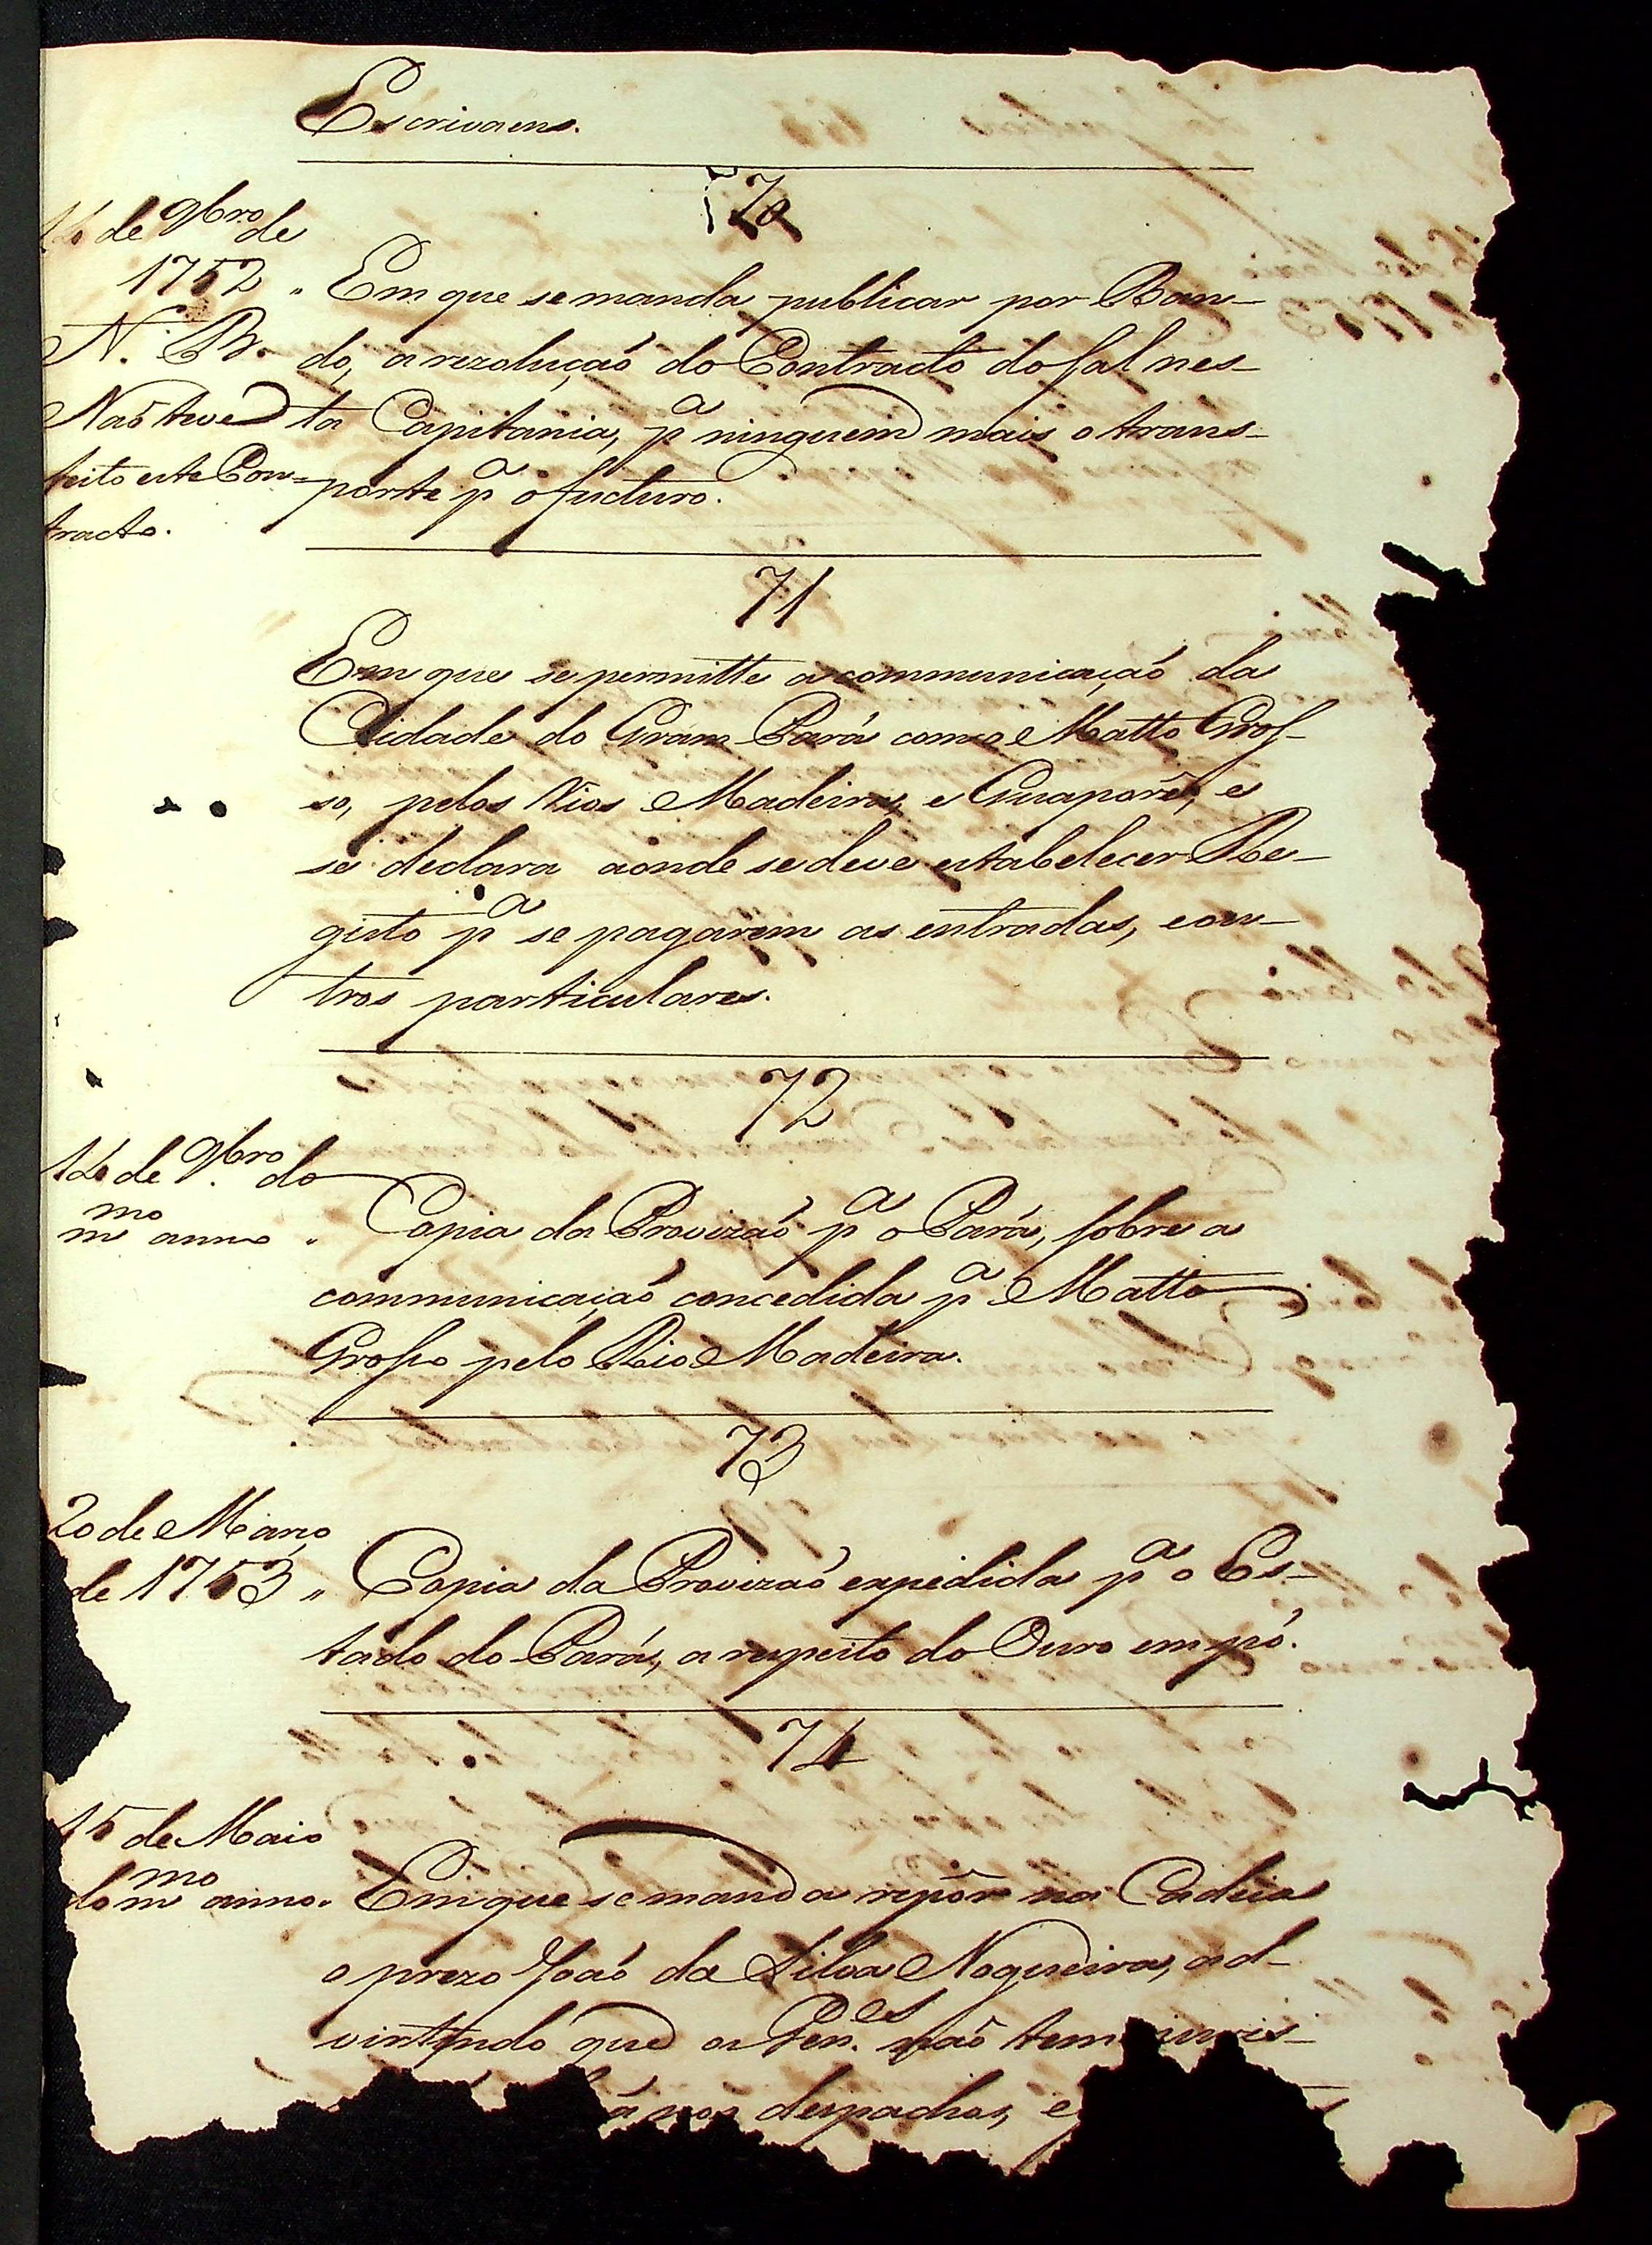 Escrivaens.
70
14 de 9bro de
1752 „ Em que se manda publicar por Ban-
N. B. do, a rezoluçaõ do Contracto do sal nes-
Naõ teve ta Capitania, pª ninguem mais o trans-
feito este Con= porte pª o futuro.
tracto.
71
Em que se permitte a communicaçaõ da
Cidade do Gram Pará com o Matto Gros-
so, pelos Rios Madeira, e Guaporê, e
se declara aonde se deve estabelecer Re-
gisto pª se pagarem as entradas, e ou-
tros particulares.
72
14 de 9bro do
mmo anno „ Copia da Provizaõ pª o Pará, sobre a
communicaçaõ concedida pª Matto
Grosso pelo Rio Madeira.
73
20 de Março
de 1753 „ Copia da Provizaõ expedida pª o Es-
tado do Pará, a respeito do Ouro em pó.
74
15 de Maio
do mmo anno. Em que se manda repôr na Cadeia
o prezo Joaõ da Silva Nogueira, ad-
vertindo que os Genes. naõ tem juris-
despachos, e